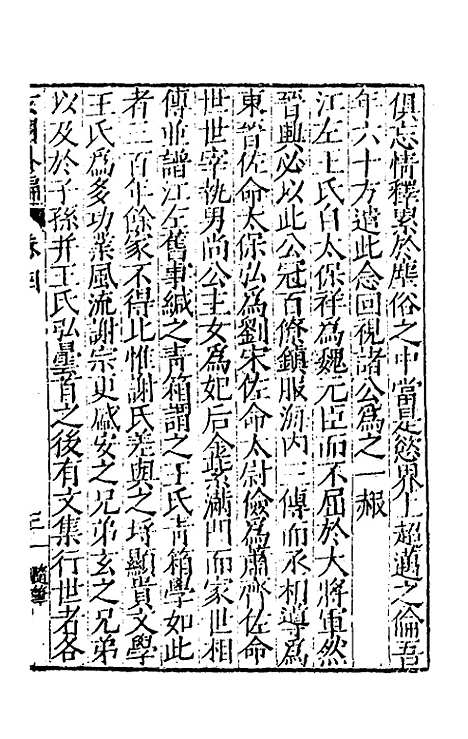 俱忘情釋累於塵俗之中當是慾界上超邁之倫吾
年六十方遣此念回視諸公為之一赧
江左王氏自太保祥為魏元臣而不屈於大將軍然
晉興必以此公冠百僚鎮服海內二傳而丞相導為
東晉佐命太保弘為劉宋佐命太尉儉為蕭齊佐命
世世宰執男尚公主女為妃后金紫滿門而家世相
傳並譜江左舊事緘之青箱謂之王氏青箱學如此
者二百年餘家不得比惟謝氏差與之埒顯貴文學
王氏為多功業風流謝宗更盛安之兄弟玄之兄弟
以及於子孫并王氏弘曇首之後有文集行世者各
外編 卷四
三 隨筆